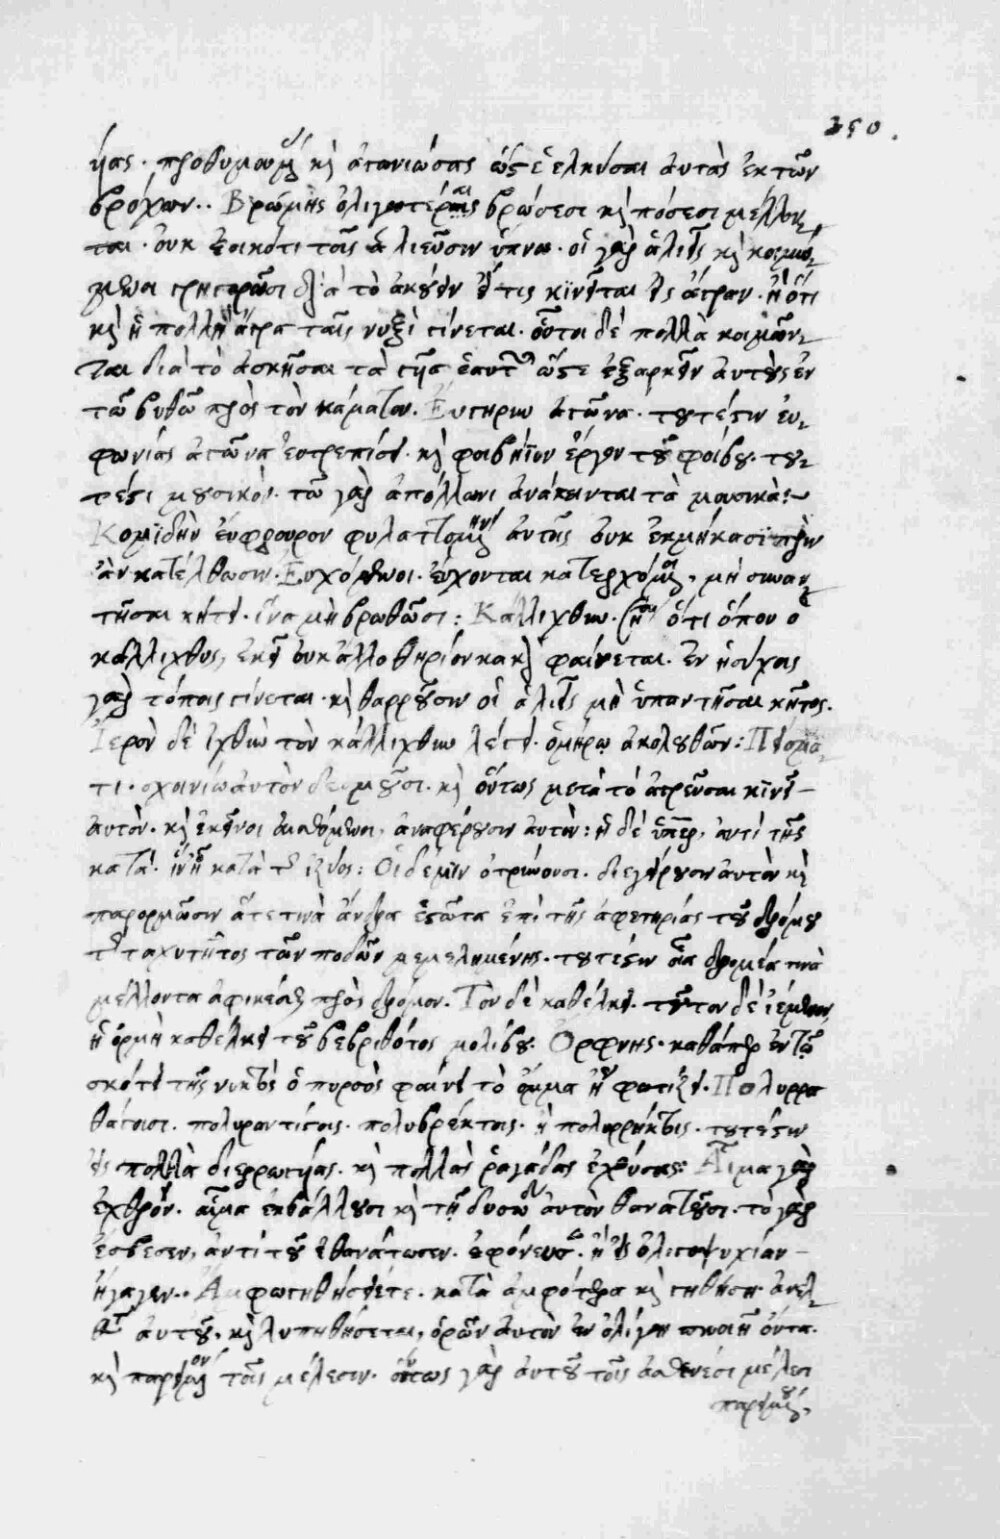 250.
ήας. προθυμουμένους καὶ ἀγωνιώσας ὥστε ἑλκύσαι αὐτὰς ἐκ τῶν
βρόχων.. Βρώμης ὀλιγωτέραις βρώσεσι καὶ πόσεσι μέλλον
ται. οὐκ ἐοικότι τοῖς ἁλιεῦσιν ὕπνω. οἱ γὰρ ἁλιεῖς καὶ κοιμώ
μενοι γρηγορῶσι διὰ τὸ ἀκούειν εἴ τις κινεῖται εἰς ἄγραν. ἢ ὅτι
καὶ ἡ πολλὴ ἄγρα ταῖς νυξὶ γίνεται. οὗτοι δὲ πολλὰ κοιμῶν
ται διὰ τὸ ἀσκῆσαι τὰ ἑαυτῶν ὥστε ἐξαρκεῖν αὐτοὺς ἐν
τῶ βυθῶ πρὸς τὸν κάματον. Εὐγηρυν ἀγῶνα. τουτέστιν εὐ
φωνίας ἀγῶνα εὐτρεπίσει. καὶ φοιβήϊον ἔργον τοῦ φοίβου. του
τέστι μουσικός. τῶ γὰρ ἀπόλλωνι ἀνάκεινται τὰ μουσικά:
Κομιδὴν εὔφρουρον φυλαττομένην αὐτῆς οὐκ πρὶν
ἂν κατέλθωσιν. Εὐχόμενοι. εὔχονται κατερχόμενοι, μὴ συναν
τῆσαι κήτει. ἵνα μὴ βρωθῶσι: Κάλλιχθυν. ὅτι ὅπου ὁ
κάλλιχθυς, ἐκεῖ οὐκ ἄλλο θηρίον κακὸν φαίνεται. ἐν ἡσύχοις
γὰρ τόποις γίνεται. καὶ θαρροῦσιν οἱ ἁλιεῖς μὴ ὑπαντῆσαι κῆτος.
Ἱερὸν δὲ ἰχθὺν τὸν κάλλιχθυν λέγει. ὁμήρω ἀκολουθῶν: Πείσμα
τι. σχοινίω αὐτὸν δεσμοῦσι. καὶ οὕτως μετὰ τὸ ἀγρεῦσαι κινεῖ
αὐτὸν. καὶ ἐκεῖνοι αἰσθόμενοι, ἀναφέρουσιν αὐτὸν: ἡ δὲ ὑπὲρ, ἀντὶ τῆς
κατά. κατὰ τὸ ἴχνος: Οἱ δέ μιν ὀτρύνουσι. διεγείρουσιν αὐτὸν καὶ
παρορμῶσιν ἅτε τινὰ ἄνδρα ἑστῶτα ἐπὶ τῆς ἀφετηρίας τοῦ δρόμου
τῆς ταχυτῆτος τῶν ποδῶν μεμελημένης. τουτέστιν οἷα δρομέα τινὰ
μέλλοντα ἀφικέσθαι πρὸς δρόμον. Τὸν δὲ καθέλκει. τοῦτον δὲ ἱέμενον
ἡ ὁρμὴ καθέλκει τοῦ βεβριθότος μολίβου. Ὀρφνης. καθάπερ ἐν τῶ
σκότει τῆς νυκτὸς ὁ πυρσὸς φαίνει τὸ ὄμμα ἢ φωτίζει. Πολυρρα
θάγοισι. πολυραντίστοις. πολυβρέκτοις. ἢ πολυρρήκτοις. τουτέστιν
εἰς πολλὰ διερρωγυίας. καὶ πολλὰς ῥαγάδας ἐχούσας: Αἷμα γὰρ
ἐχθρόν. αἷμα ἐκβάλλουσι καὶ τῇ δυσωδία αὐτὸν θανατοῦσι. τὸ γὰρ
ἔσβεσεν, ἀντὶ τοῦ ἐθανάτωσεν. ἐφόνευσεν. ἢ εἰς ὀλιγοψυχίαν
ἤγαγεν.. Ἀμφωγηθήσειέ τε. κατὰ ἀμφότερα καὶ γηθήσει ἀνελ
θὸν αὐτοῦ, καὶ λυπηθήσεται, ὁρῶν αὐτὸν ἐν ὀλίγη πνοιῇ ὄντα.
καὶ παρειμένον τοῖς μέλεσιν. οὕτως γὰρ αὐτοῦ τοῖς ἀσθενέσι μέλεσι
παρειμένου,